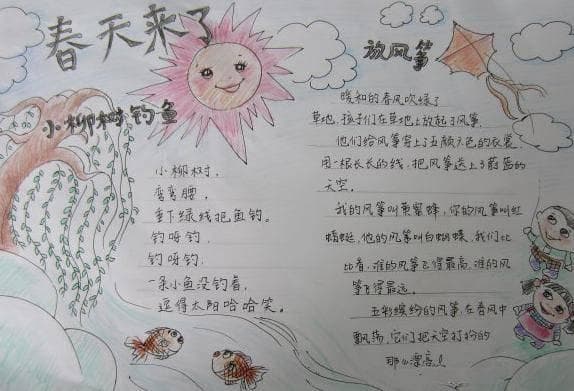 春天来了
小柳树钓鱼
小柳树，
弯弯腰，
垂下绿线把鱼钓。
钓呀钓，
钓呀钓，
一条小鱼没钓着，
逗得太阳哈哈笑。
放风筝
暖和的春风吹绿了
草地，孩子们在草地上放起了风筝。
他们给风筝穿上五颜六色的衣裳
用一根长长的线，把风筝送上了蔚蓝的
天空。
我的风筝叫黄蜜蜂，你的风筝叫红
蜻蜓，他的风筝叫白蝴蝶，我们比
比看，谁的风筝飞得最高，谁的风
筝飞得最远。
五彩缤纷的风筝，在春风中
飘荡，它们把天空打扮的
那么漂亮！